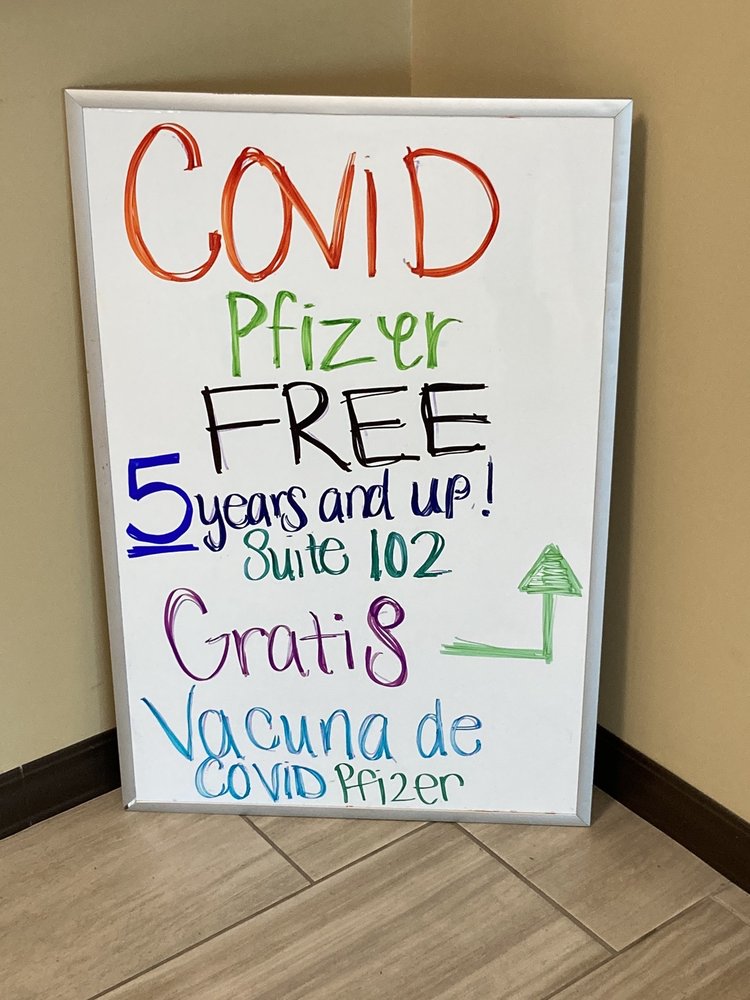 COViD
Pfizer
FREE
5 years and up!
Suite 102
Gratis
Vacuna de
COVID Pfizer